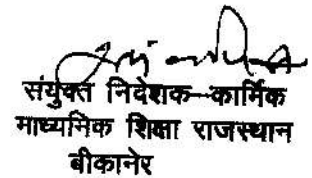 संयुक्त निदेशक-कार्मिक
माध्यमिक शिक्षा राजस्थान
बीकानेर